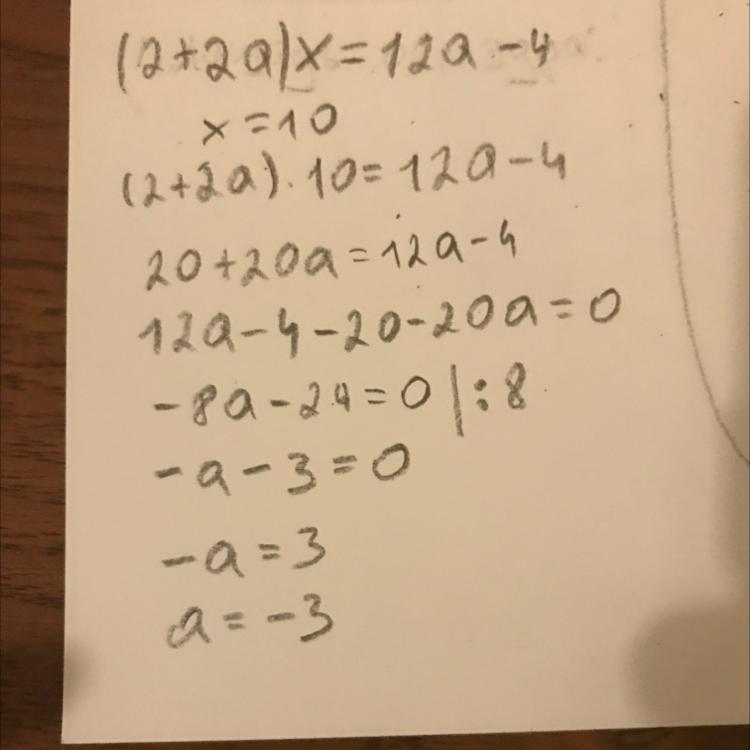 (2+2a)x=12a-4
x=10
(2+2a)·10=12a-4
20+20a=12a-4
12a-4-20-20a=0
-8a-24=0|:8
-a-3=0
-a=3
a=-3